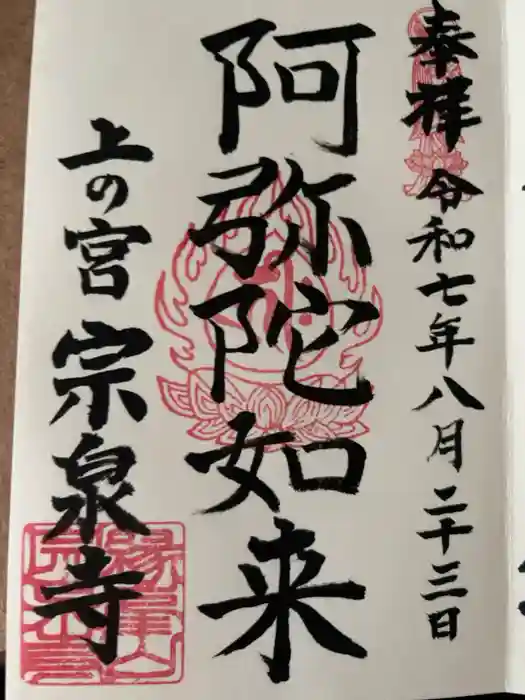 奉拝 令和七年八月二十三日
阿弥陀如来
上の宮 宗泉寺